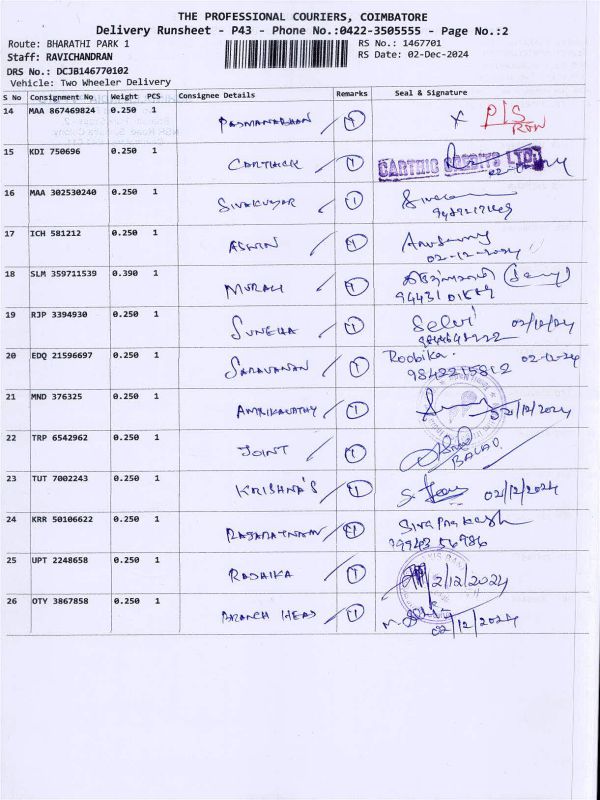 THE PROFESSIONAL COURIERS, COIMBATORE
Delivery Runsheet - P43 - Phone No.:0422-3505555 - Page No.:2
Route: BHARATHI PARK 1 RS No.: 1467701
Staff: RAVICHANDRAN RS Date: 02-Dec-2024
DRS No.: DCJB146770102
Vehicle: Two Wheeler Delivery
S No Consignment No Weight PCS Consignee Details Remarks Seal & Signature
14 MAA 867469824 0.250 1 PADMANABHAN 1 x P/S
15 KDI 750696 0.250 1 CARTHICK 1
16 MAA 302530240 0.250 1 SIVAKUMAR 1
17 ICH 581212 0.250 1 ASWIN 1
02-12-2024
18 SLM 359711539 0.390 1 MURALI 1
19 RJP 3394930 0.250 1 SUNEHA 1 Selvi 02/12/24
20 EDQ 21596697 0.250 1 SARAVANAN 1 Roobika. 02-12-24
9842215812
21 MND 376325 0.250 1 1 2/12/2024
22 TRP 6542962 0.250 1 JOINT 1
BALAJI
23 TUT 7002243 0.250 1 KRISHNA'S 1 02/12/2024
24 KRR 50106622 0.250 1 RAJARATNAM 1 Siva Prakash
99943 56986
25 UPT 2248658 0.250 1 RADHIKA 1 2/12/2024
26 OTY 3867858 0.250 1 BRANCH HEAD 1
02/12/2024